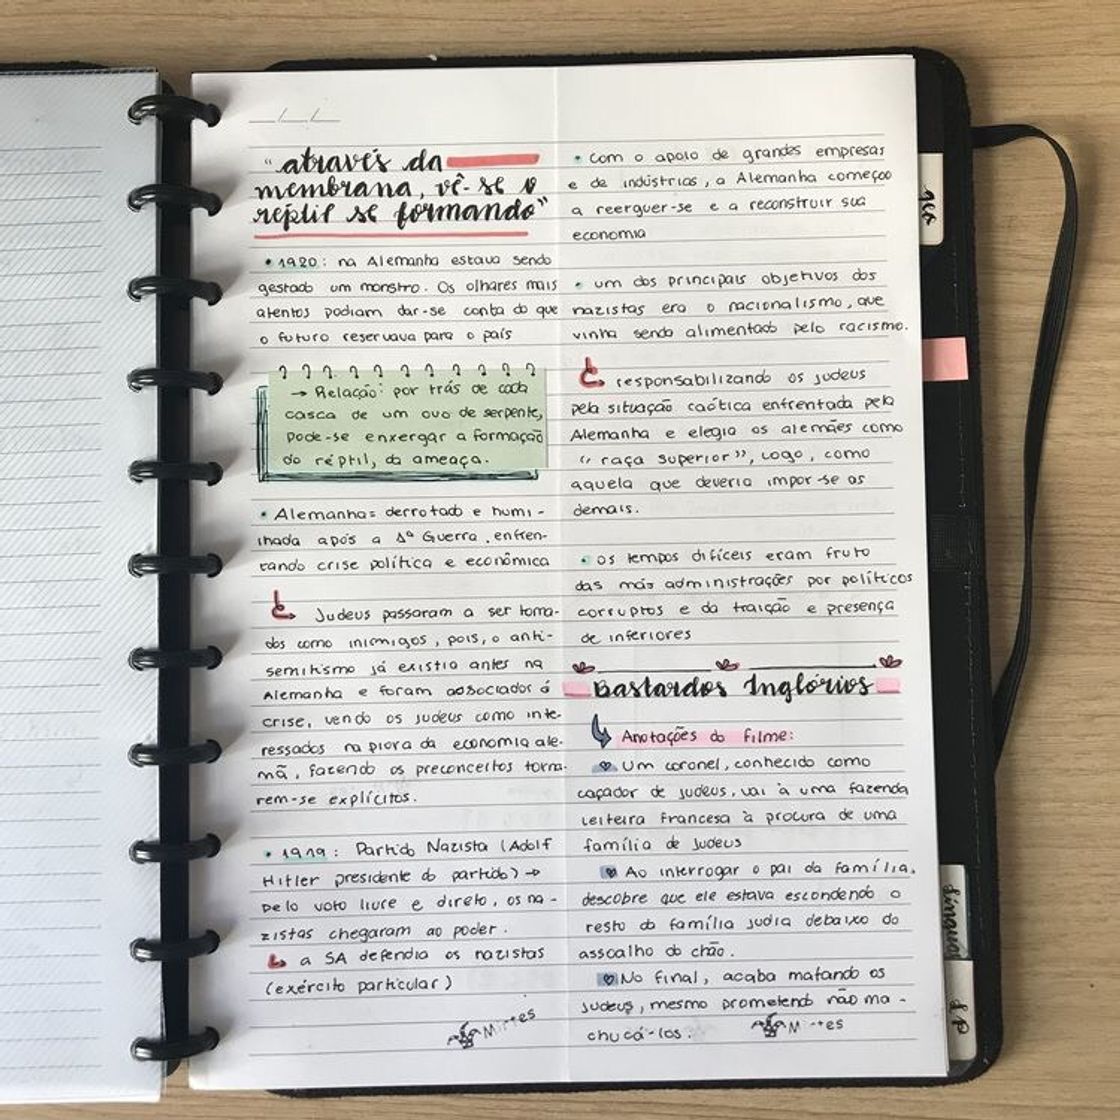 __/__/__
"através da
membrana, vê-se o
réptil se formando"
• 1920: na Alemanha estava sendo
gestado um monstro. Os olhares mais
atentos podiam dar-se conta do que
o futuro reservava para o país
→ Relação: por trás de cada
casca de um ovo de serpente,
pode-se enxergar a formação
do réptil, da ameaça.
• Alemanha= derrotada e humi-
lhada após a 1ª Guerra, enfren-
tando crise política e econômica
Judeus passaram a ser toma-
dos como inimigos, pois, o anti-
semitismo já existia antes na
Alemanha e foram associados á
crise, vendo os judeus como inte-
ressados na piora da economia ale-
mã, fazendo os preconceitos torna-
rem-se explícitos.
• 1919: Partido Nazista (Adolf
Hitler presidente do partido) →
pelo voto livre e direto, os na-
zistas chegaram ao poder.
↳ a SA defendia os nazistas
(exército particular)
• com o apoio de grandes empresas
e de indústrias, a Alemanha começou
a reerguer-se e a reconstruir sua
economia
• um dos principais objetivos dos
nazistas era o nacionalismo, que
vinha sendo alimentado pelo racismo.
responsabilizando os judeus
pela situação caótica enfrentada pela
Alemanha e elegia os alemães como
"raça superior", logo, como
aquela que deveria impor-se os
demais.
• os tempos difíceis eram fruto
das más administrações por políticos
corruptos e da traição e presença
de inferiores
Bastardos Inglórios
Anotações do filme:
Um coronel, conhecido como
caçador de judeus, vai à uma fazenda
leiteira francesa à procura de uma
família de judeus
Ao interrogar o pai da família,
descobre que ele estava escondendo o
resto da família judia debaixo do
assoalho do chão.
No final, acaba matando os
judeus, mesmo prometendo não ma-
chucá-los.
geo